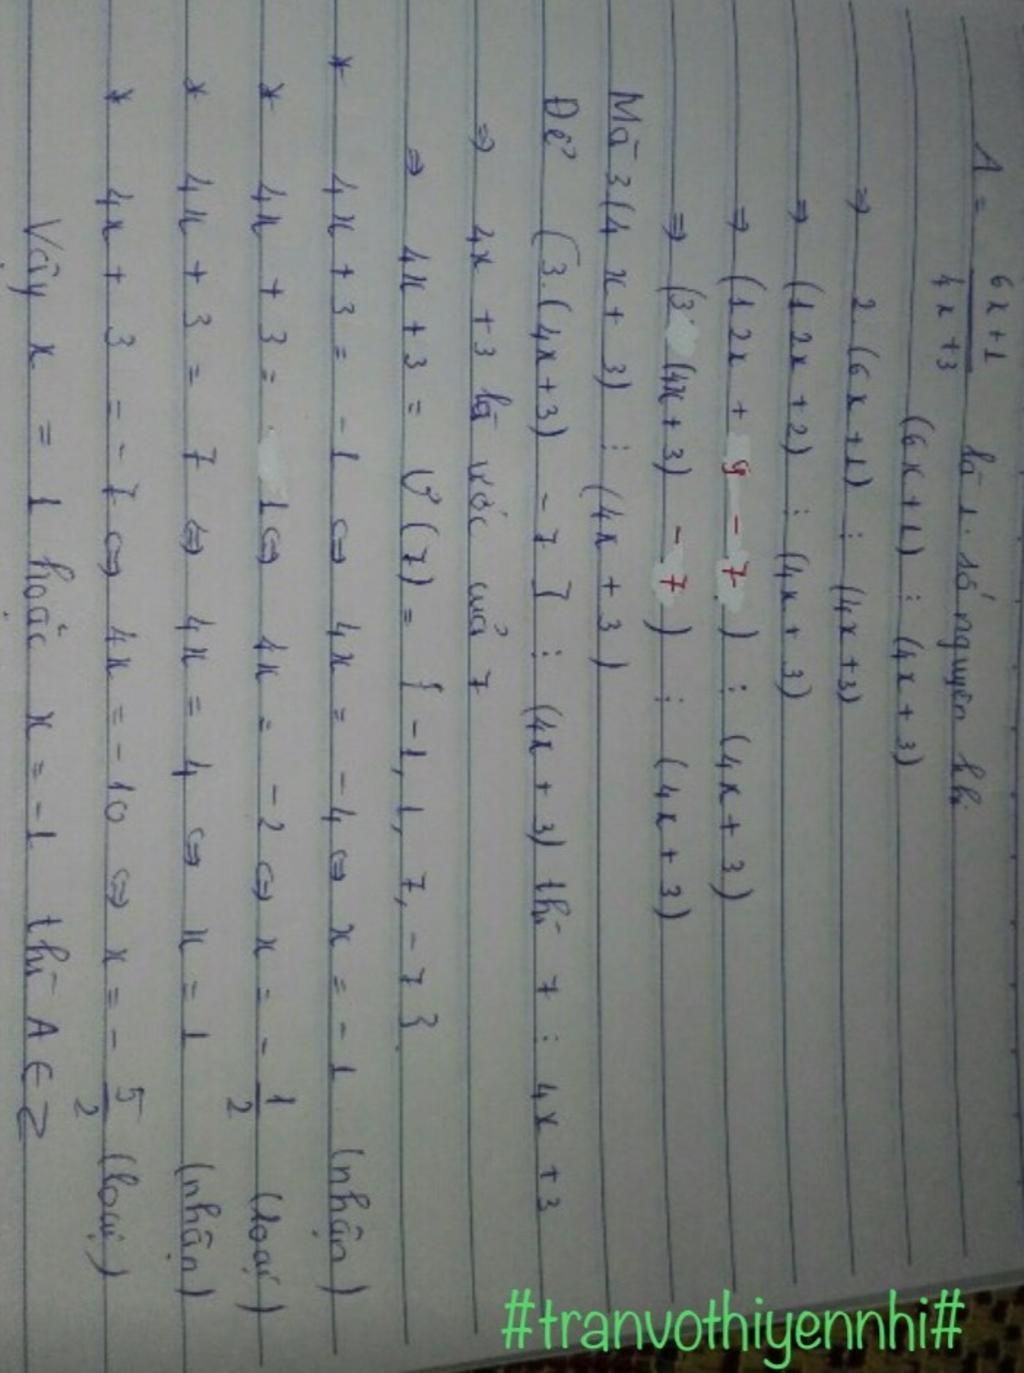 A = \frac{6x+1}{4x+3} là 1 số nguyên khi
(6x+1) ⋮ (4x+3)
⇒ 2 (6x+1) ⋮ (4x+3)
⇒ (12x+2) ⋮ (4x+3)
⇒ (12x + 9 - 7) ⋮ (4x+3)
⇒ (3 (4x+3) - 7) ⋮ (4x+3)
Mà 3(4x+3) ⋮ (4x+3)
Để (3.(4x+3) - 7] ⋮ (4x+3) thì 7 ⋮ 4x+3
⇒ 4x+3 là ước của 7
⇒ 4x+3 = Ư(7) = {-1, 1, 7, -7}.
* 4x+3 = -1 ⇔ 4x = -4 ⇔ x = -1 (nhận)
* 4x+3 = 1 ⇔ 4x = -2 ⇔ x = -\frac{1}{2} (loại)
* 4x+3 = 7 ⇔ 4x = 4 ⇔ x = 1 (nhận)
* 4x+3 = -7 ⇔ 4x = -10 ⇔ x = -\frac{5}{2} (loại)
Vậy x = 1 hoặc x = -1 thì A ∈ Z
#tranvothiyennhi#